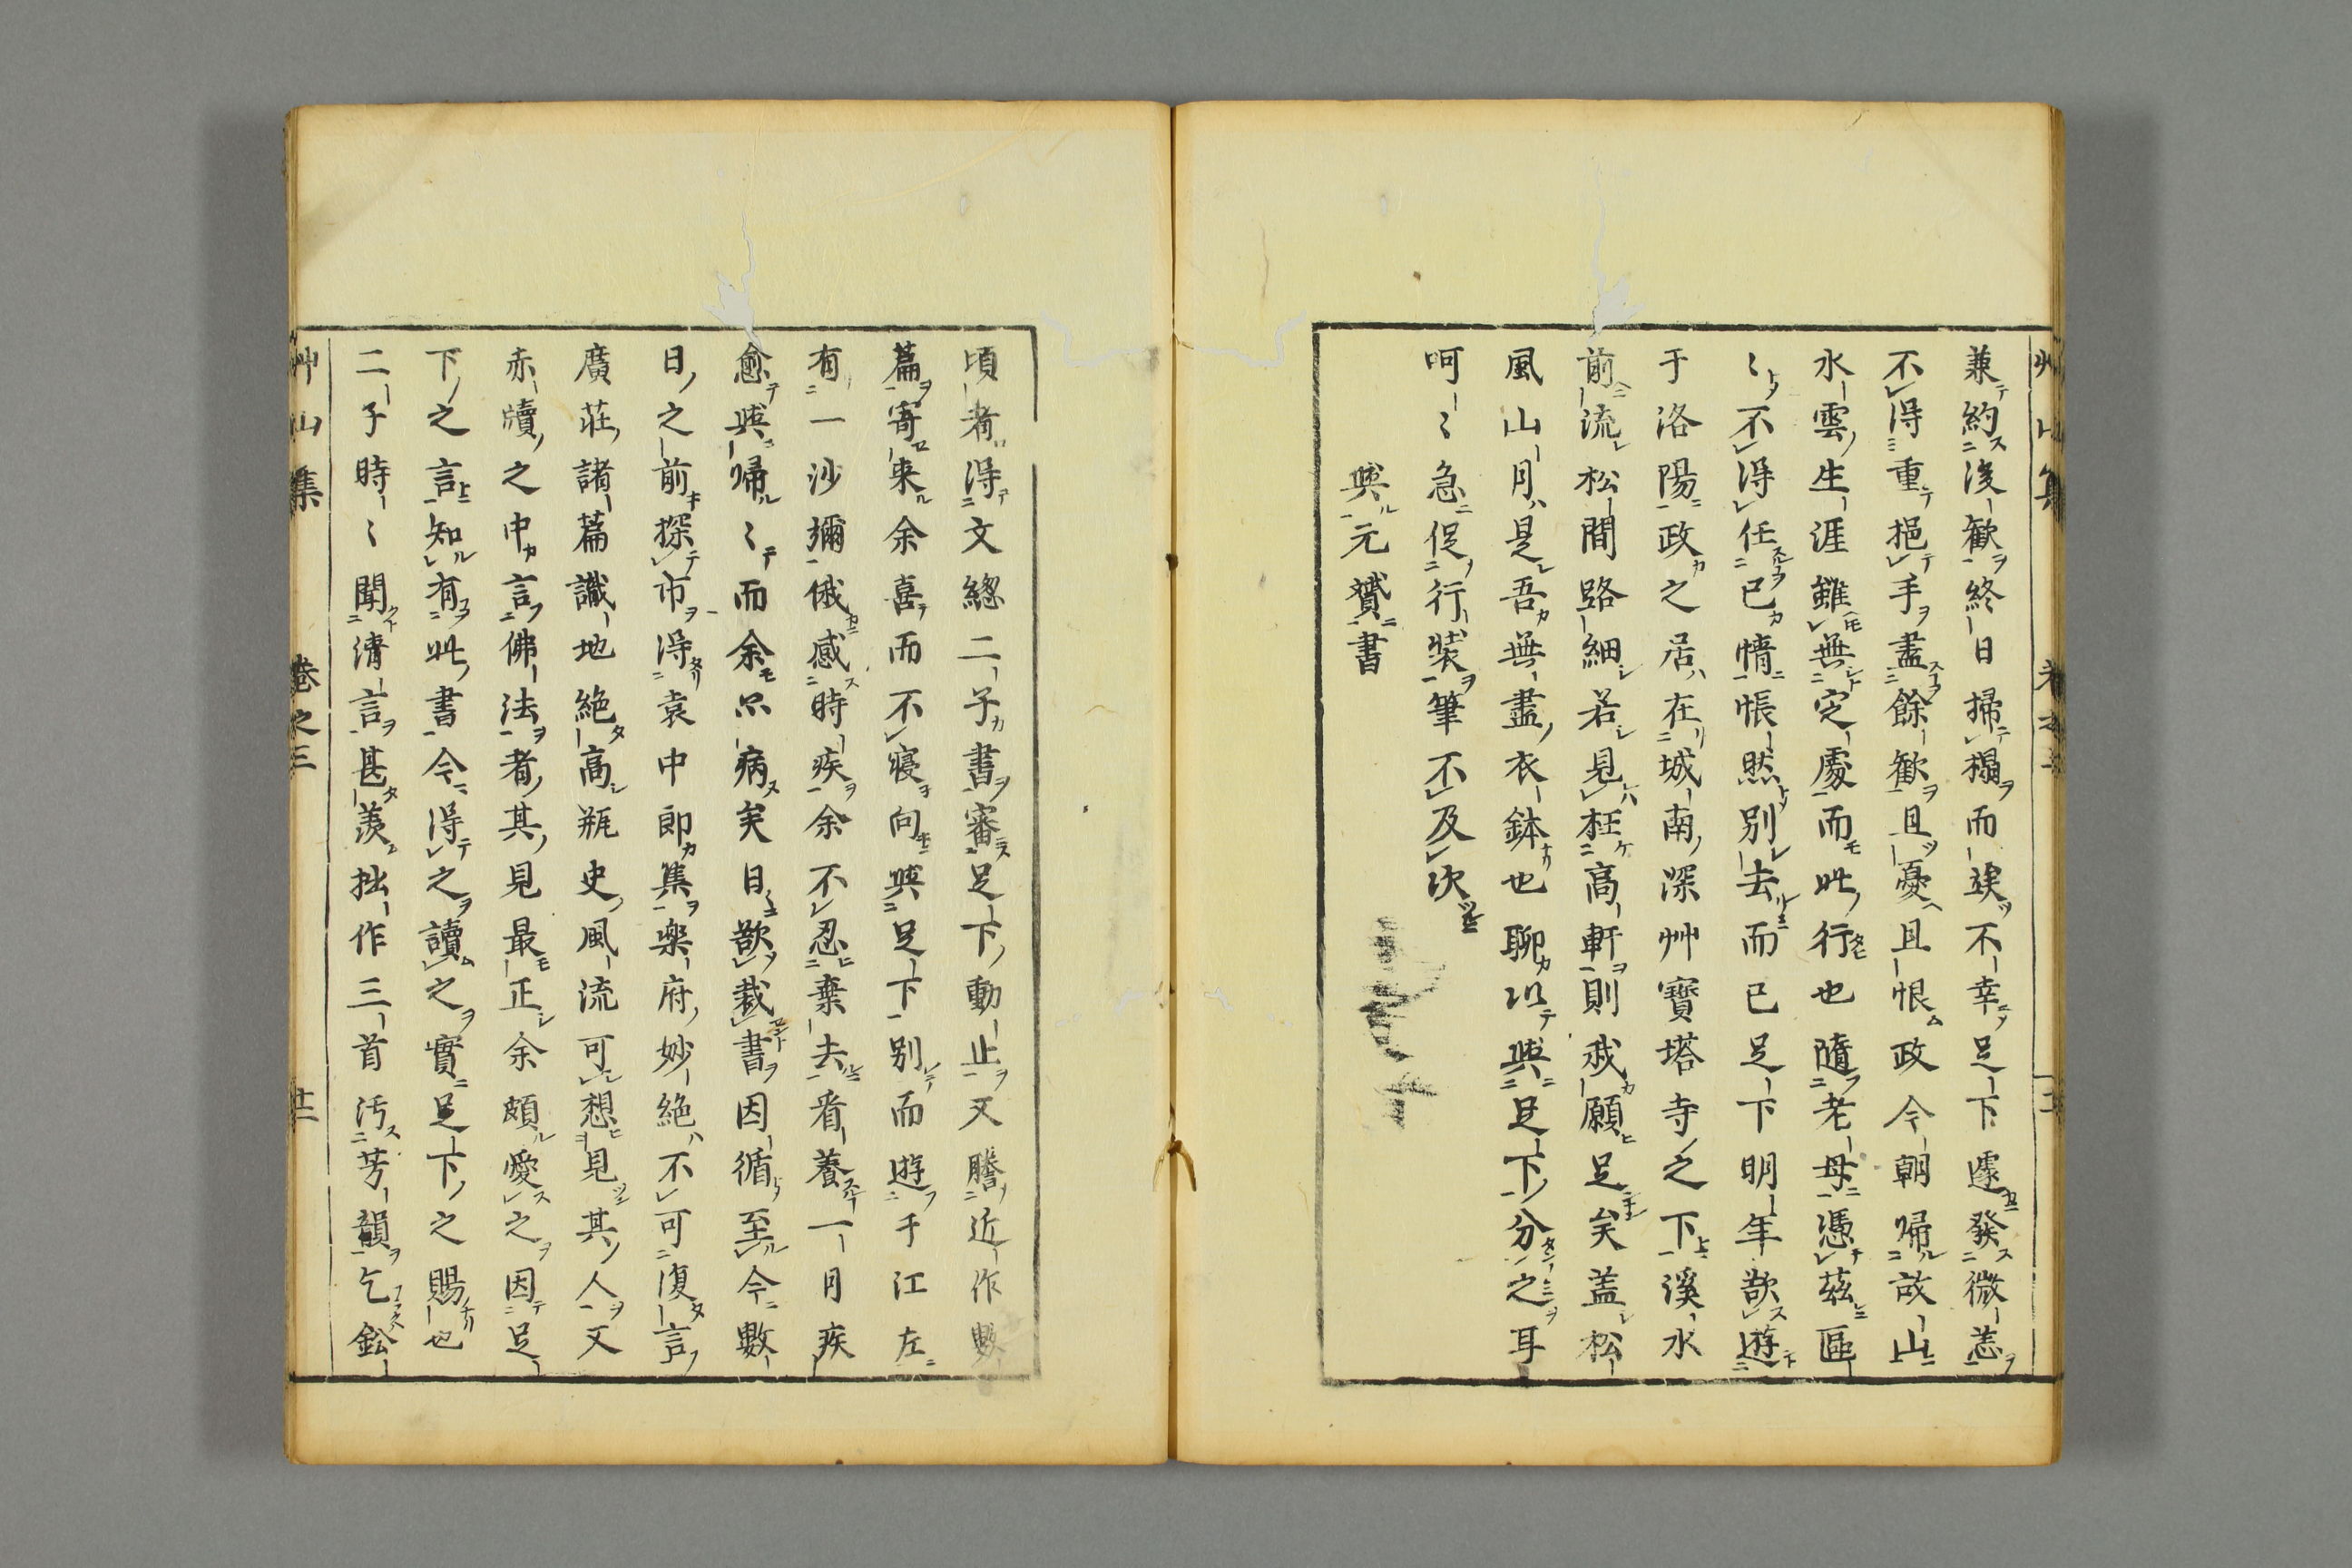 兼約後歓終日掃榻而竢不幸足下遽發微恙
不得重挹手盡餘歓且憂且恨政今朝帰故山
水雲生涯雖無定處而此行也隨老母憑茲區
〻不得任已情悵然別去而已足下明年欲遊
于洛陽政之居在城南深艸寶塔寺之下溪水
前流松間路細若見枉高軒則我願足矣盖松
風山月是吾無盡衣鉢也聊以與足下分之耳
呵〻急促行裝筆不及次
與元贇書
頃者得文緫二子書審足下動止又謄近作數
篇寄来余喜而不寝向與足下別而遊于江左
有一沙彌俄感時疾余不忍棄去看養一月疾
愈與帰〻而余亦病矣日欲裁書因循至今數
日之前探市得袁中郎集樂府妙絶不可復言
廣莊諸篇識地絶高瓶史風流可想見其人又
赤牘之中言佛法者其見最正余頗愛之因足
下之言知有此書今得之讀之實足下之賜也
二子時〻聞清言甚羨拙作三首汚芳韻乞鉛
艸山集 巻之三 十二